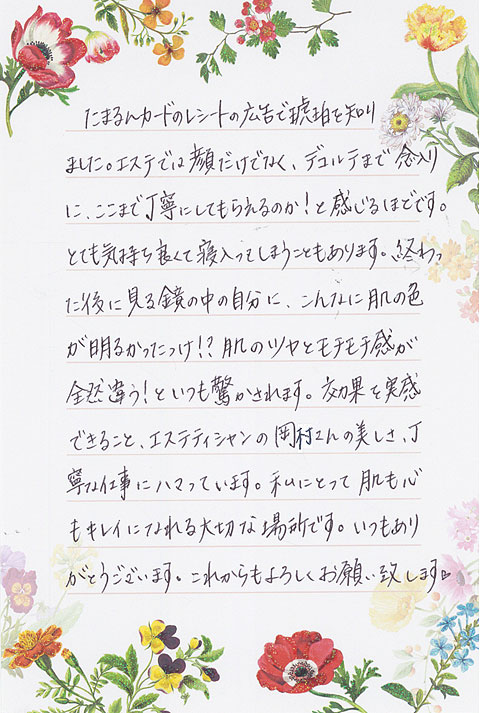 たまるんカードのレシートの広告で琥珀を知り
ました。エステでは顔だけでなく、デコルテまで念入り
に、ここまで丁寧にしてもらえるのか！と感じるほどです。
とても気持ち良くて寝入ってしまうこともあります。終わっ
た後に見る鏡の中の自分に、こんなに肌の色
が明るかったっけ！？肌のツヤとモチモチ感が
全然違う！といつも驚かされます。効果を実感
できること、エステティシャンの岡村さんの美しさ、丁
寧な仕事にハマっています。私にとって肌も心
もキレイになれる大切な場所です。いつもあり
がとうございます。これからもよろしくお願い致します♡